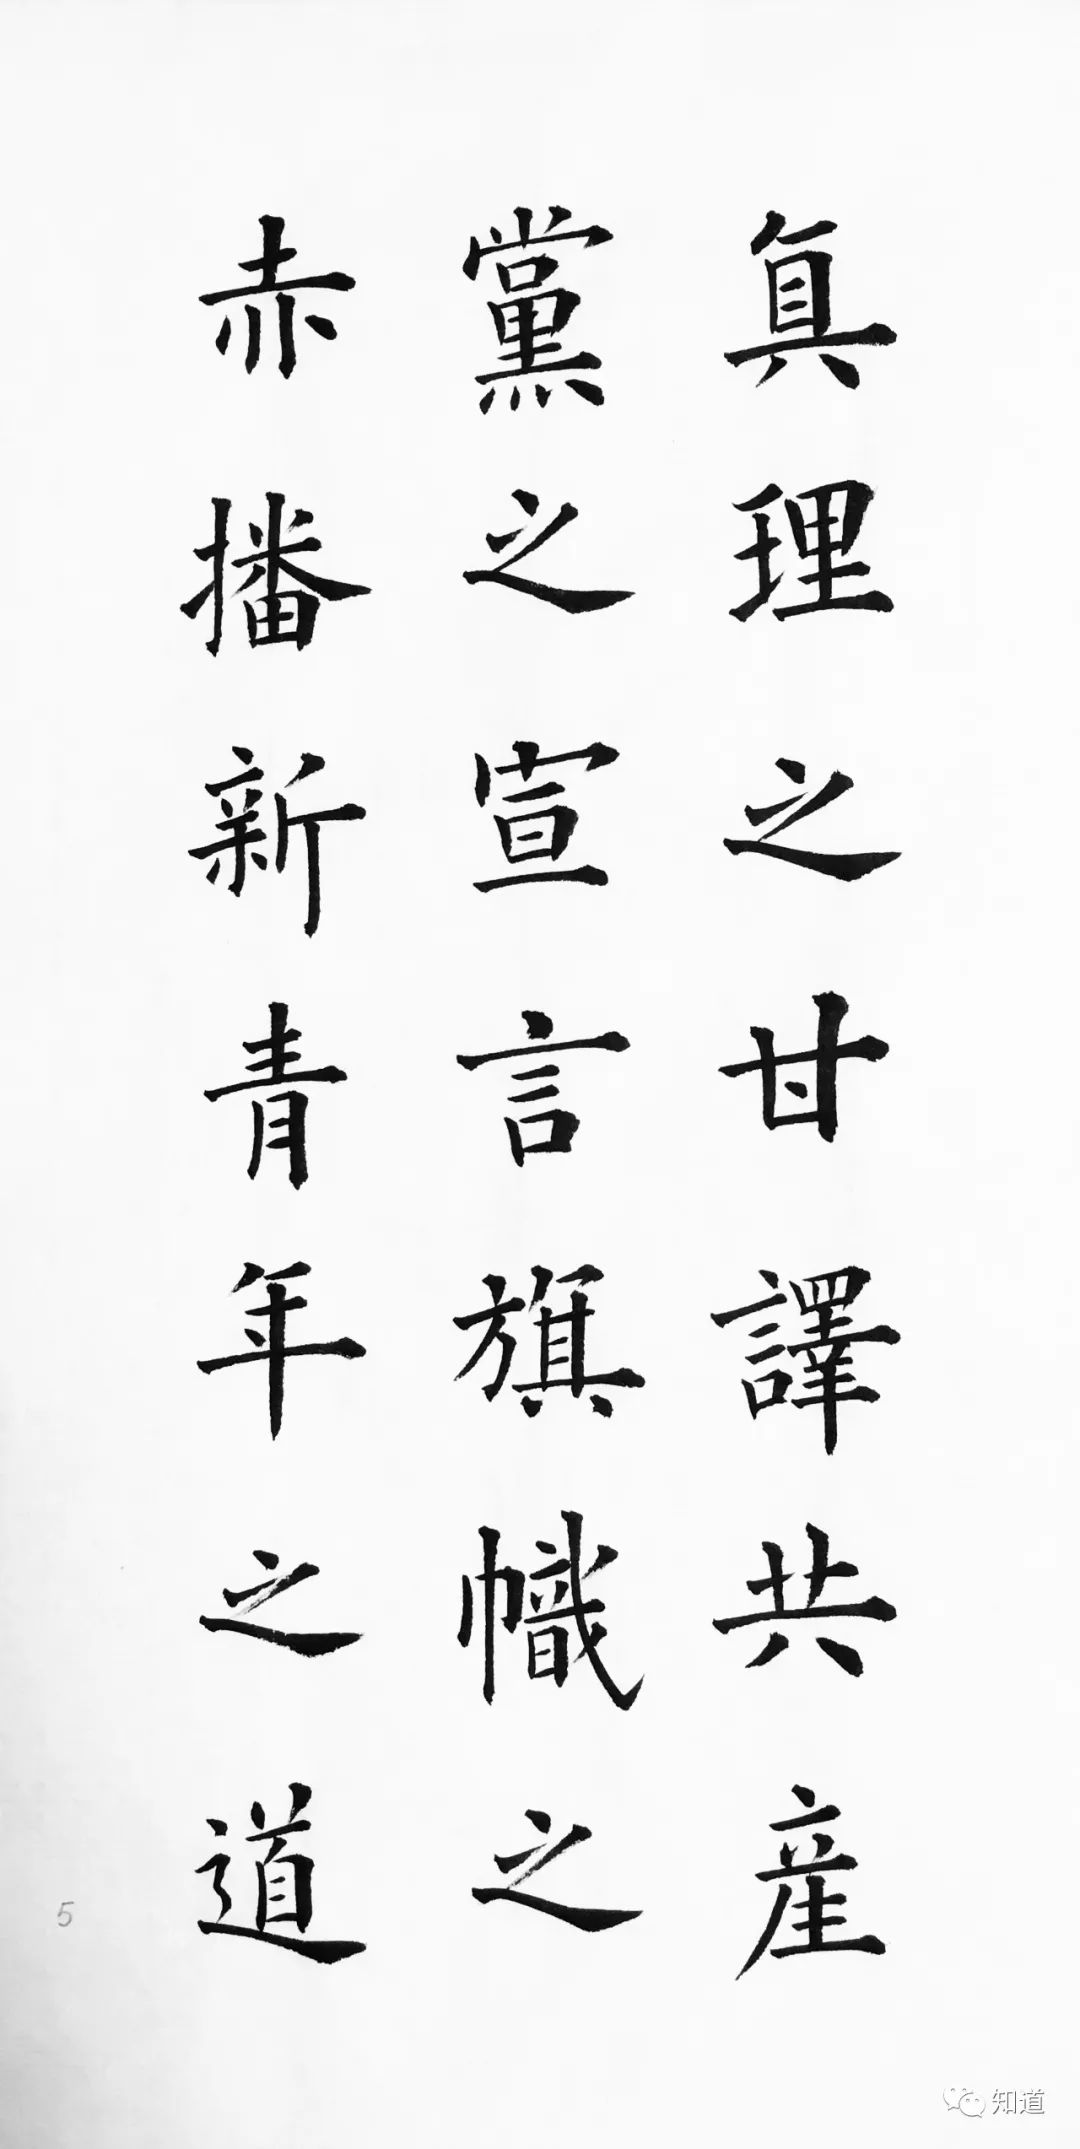 真理之甘譯共産
黨之宣言旗幟之
赤播新青年之道
5
知道